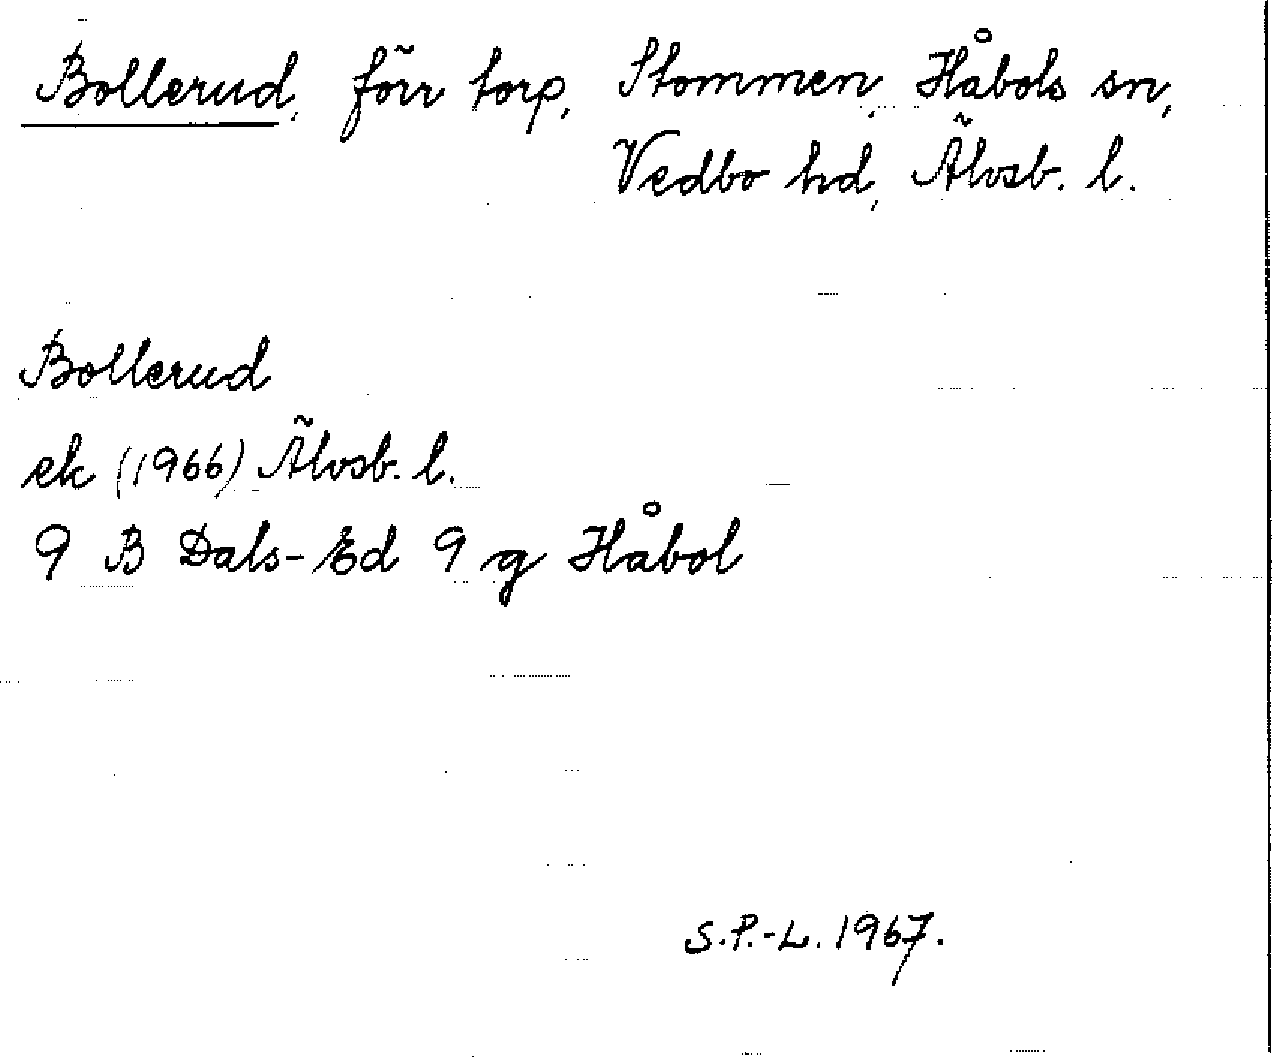 Bollerud, förr torp, Stommen, Håbols sn,
Vedbo hd, Älvsb. l.
Bollerud
ek (1966) Älvsb. l.
9 B Dals-Ed 9 g Håbol
S.P.-L. 1967.